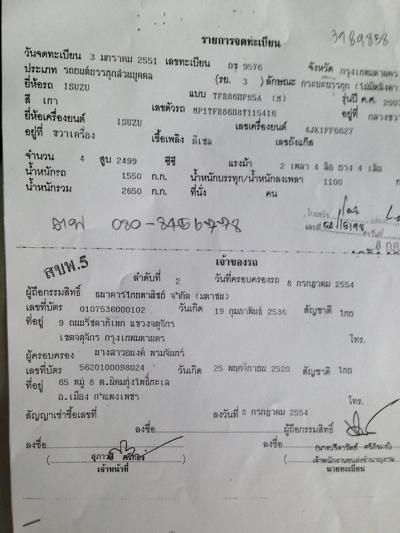 3989858
รายการจดทะเบียน
วันจดทะเบียน 3 มกราคม 2551 เลขทะเบียน 9576 จังหวัด กรุงเทพมหานคร
ประเภท รถยนต์บรรทุกส่วนบุคคล (รย. 3 ) ลักษณะ กระบะบรรทุก
ยี่ห้อรถ ISUZU แบบ รุ่นปี ค.ศ. 2007
สี เทา เลขตัวรถ MP1TFR86H8T115416 อยู่ที่
ยี่ห้อเครื่องยนต์ ISUZU เลขเครื่องยนต์ 4JK1FF6627
อยู่ที่ ขวาเครื่อง เชื้อเพลิง ดีเซล เลขถังแก๊ส
จำนวน 4 สูบ 2499 ซีซี แรงม้า 2 เพลา 4 ล้อ ยาง 4 เส้น
น้ำหนักรถ 1550 ก.ก. น้ำหนักบรรทุก/น้ำหนักลงเพลา 1100
น้ำหนักรวม 2650 ก.ก. ที่นั่ง คน
สบพ.5
เจ้าของรถ
ลำดับที่ 2 วันที่ครอบครองรถ 8 กรกฎาคม 2554
ผู้ถือกรรมสิทธิ์ ธนาคารไทยพาณิชย์ จำกัด (มหาชน)
เลขที่บัตร 0107536000102 วันเกิด 19 กุมภาพันธ์ 2536 สัญชาติ ไทย
ที่อยู่ 9 ถนนรัชดาภิเษก แขวงจตุจักร
เขตจตุจักร กรุงเทพมหานคร โทร.
ผู้ครอบครอง นางสาวอนงค์ พรมจันทร์
เลขที่บัตร 5620100098024 วันเกิด 25 พฤศจิกายน 2520 สัญชาติ ไทย
ที่อยู่ 65 หมู่ 8 ต.นิคมทุ่งโพธิ์ทะเล
อ.เมือง กำแพงเพชร โทร.
สัญญาเช่าซื้อเลขที่ ลงวันที่ 8 กรกฎาคม 2554
ลงชื่อ ผู้ถือกรรมสิทธิ์
ลงชื่อ ลงชื่อ
เจ้าหน้าที่
นายทะเบียน